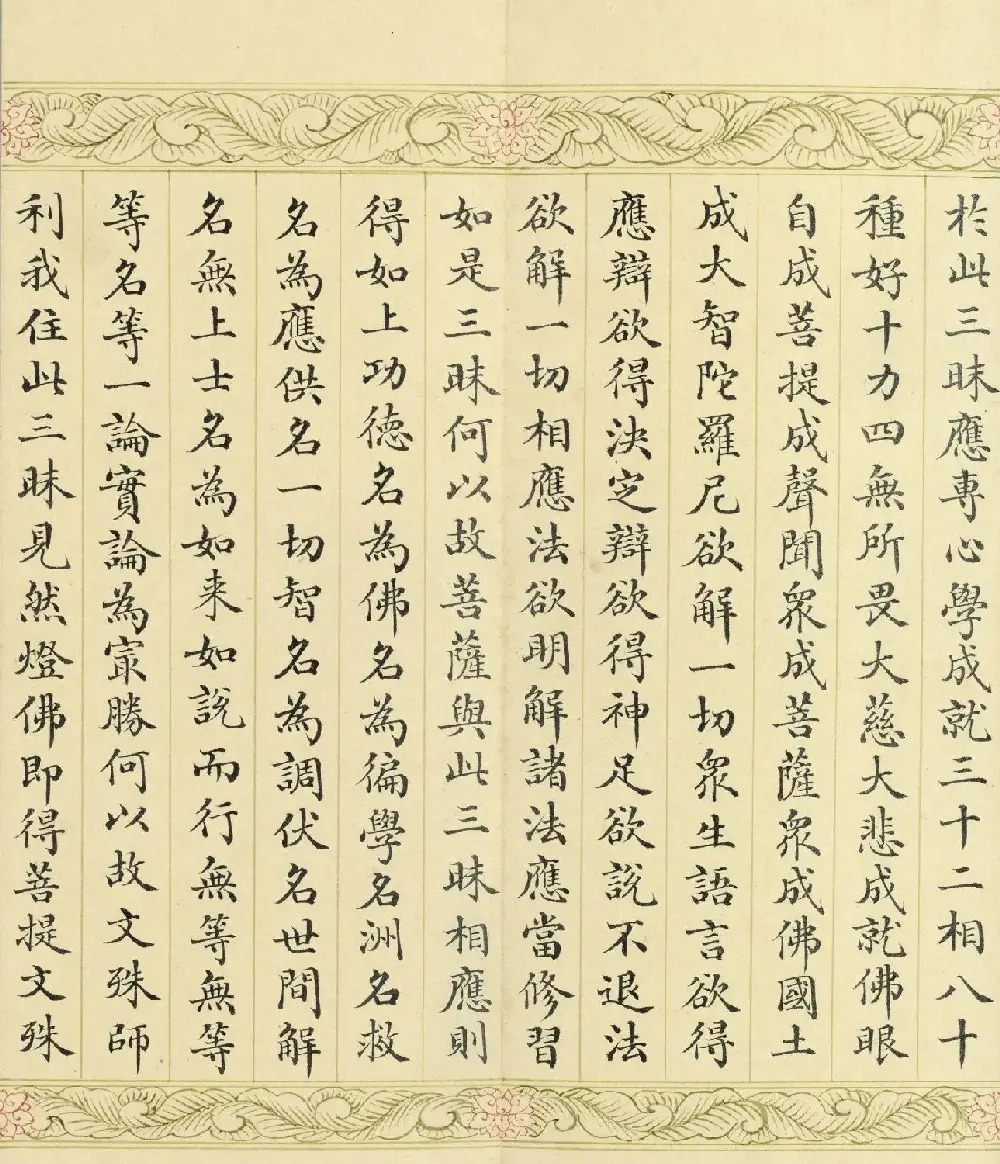 於此三昧應專心學成就三十二相八十
種好十力四無所畏大慈大悲成就佛眼
自成菩提成聲聞眾成菩薩眾成佛國土
成大智陀羅尼欲解一切眾生語言欲得
應辯欲得決定辯欲得神足欲說不退法
欲解一切相應法欲明解諸法應當修習
如是三昧何以故菩薩與此三昧相應則
得如上功德名為佛名為徧學名洲名救
名為應供名一切智名為調伏名世間解
名無上士名為如来如說而行無等無等
等名等一論實論為冣勝何以故文殊師
利我住此三昧見然燈佛即得菩提文殊